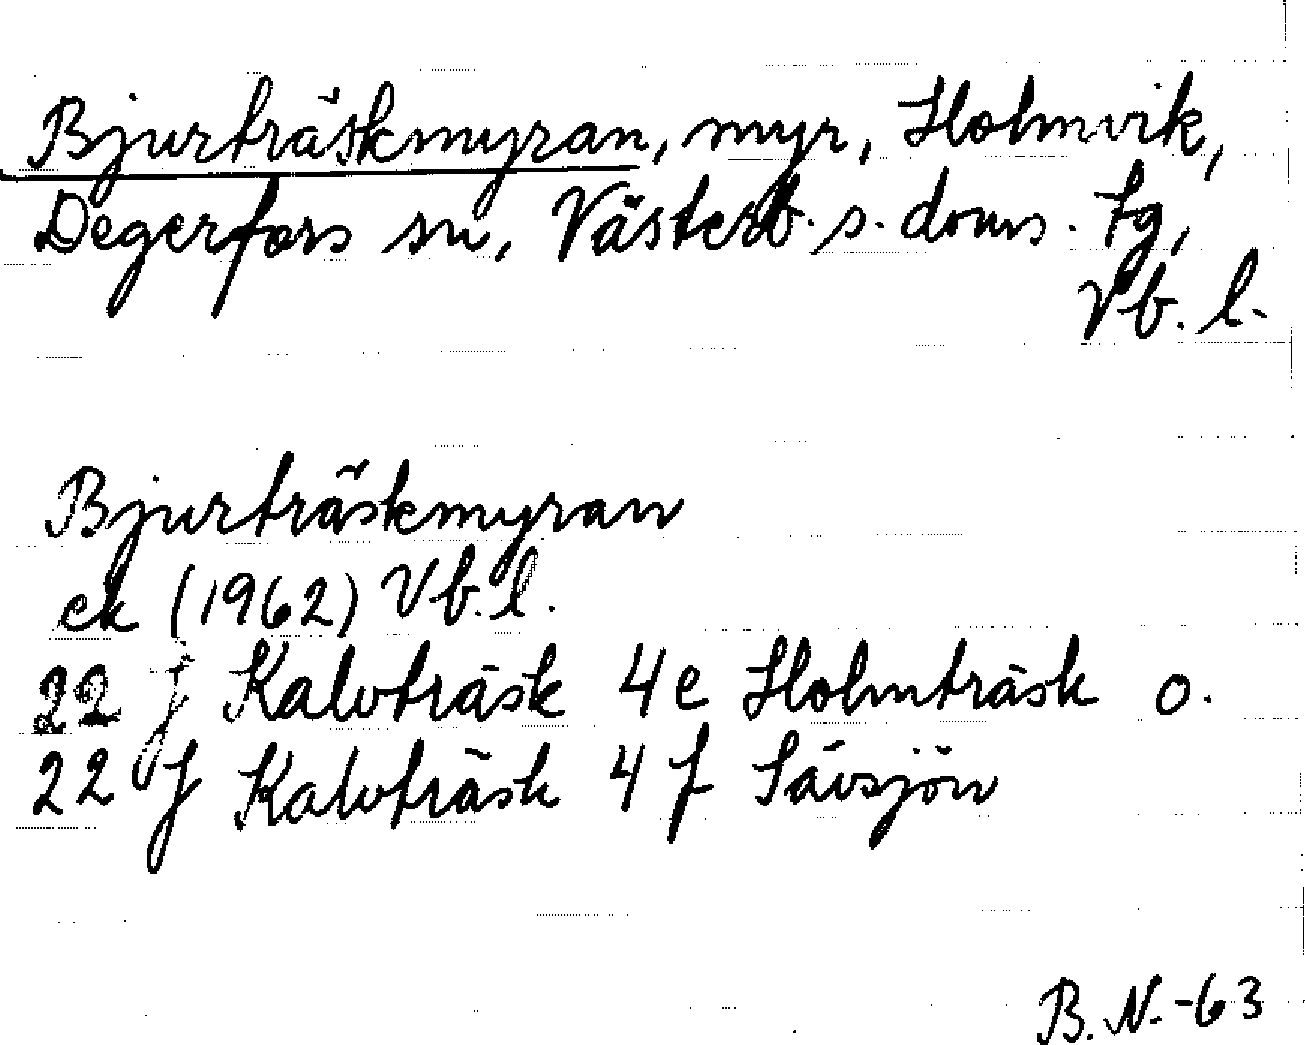 Bjurträskmyran, myr, Holmvik,
Degerfors sn, Västerb. s. doms. tg,
Vb. l.
Bjurträskmyran
ek (1962) Vb. l.
22 J Kalvträsk 4e Holmträsk o.
22 J Kalvträsk 4 f Sävsjön
B. N. -63